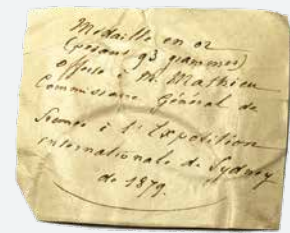 Médaille en or
(pesant 93 grammes)
offerte à M. Mathieu
Commissaire Général de
France à l'Exposition
internationale de Sydney
de 1879.